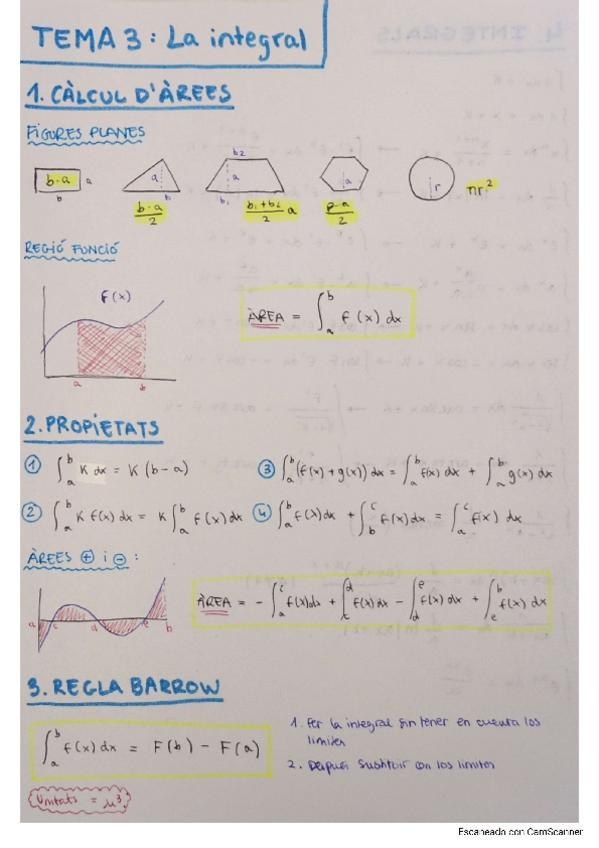 TEMA 3: La integral
1. CÀLCUL D'ÀREES
FIGURES PLANES
b·a a
b
a
b
b·a/2
b2
a
b1
b1+b2/2 a
a
P·a/2
r
πr²
REGIÓ FUNCIÓ
f(x)
a b
ÀREA = ∫_a^b f(x) dx
2. PROPIETATS
① ∫_a^b K dx = K (b-a)
③ ∫_a^b (f(x) + g(x)) dx = ∫_a^b f(x) dx + ∫_a^b g(x) dx
② ∫_a^b K f(x) dx = K ∫_a^b f(x) dx
④ ∫_a^b f(x) dx + ∫_b^c f(x) dx = ∫_a^c f(x) dx
ÀREES ⊕ i ⊖ :
a c d e b
ÀREA = - ∫_a^c f(x)dx + ∫_c^d f(x) dx - ∫_d^e f(x) dx + ∫_e^b f(x) dx
3. REGLA BARROW
∫_a^b f(x) dx = F(b) - F(a)
1. Fer la integral sin tener en cuenta los
limites
2. Después substituir con los limites
Unitats = μ³
Escaneado con CamScanner